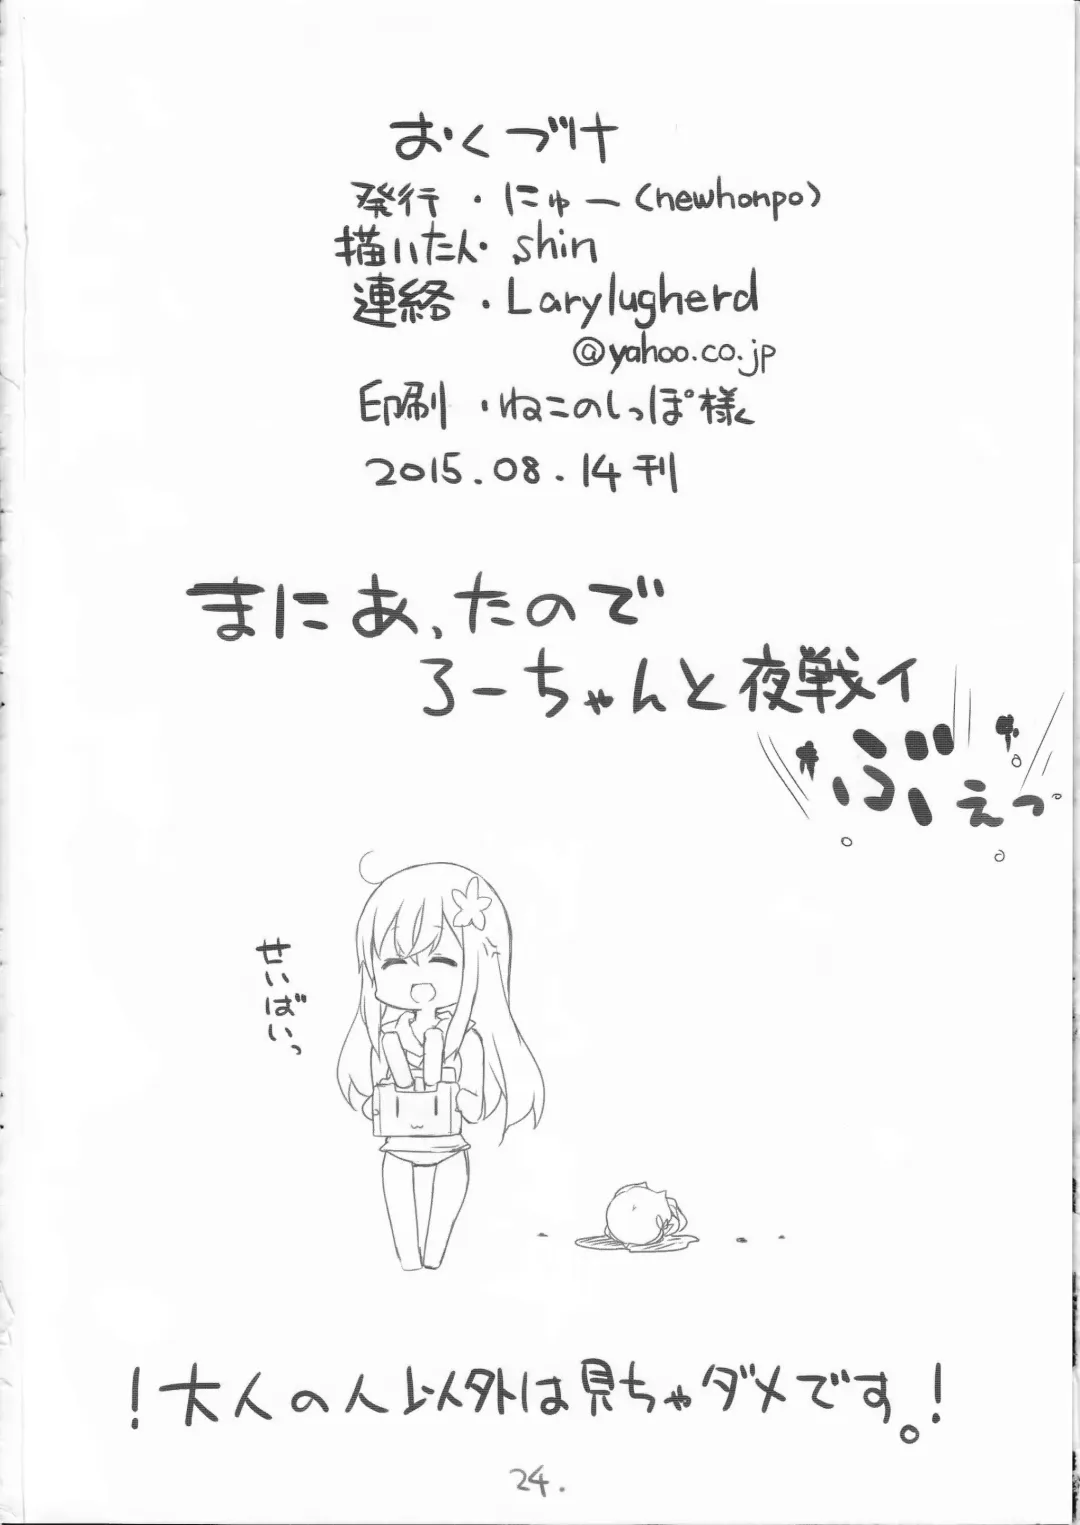 おくづけ
発行・にゅー(newhonpo)
描いた人・shin
連絡・Larylugherd
@yahoo.co.jp
印刷・ねこのしっぽ様
2015.08.14刊
まにあったので
ろーちゃんと夜戦イ
ぶぇっ
せいばいっ
!大人の人以外は見ちゃダメです。!
24.